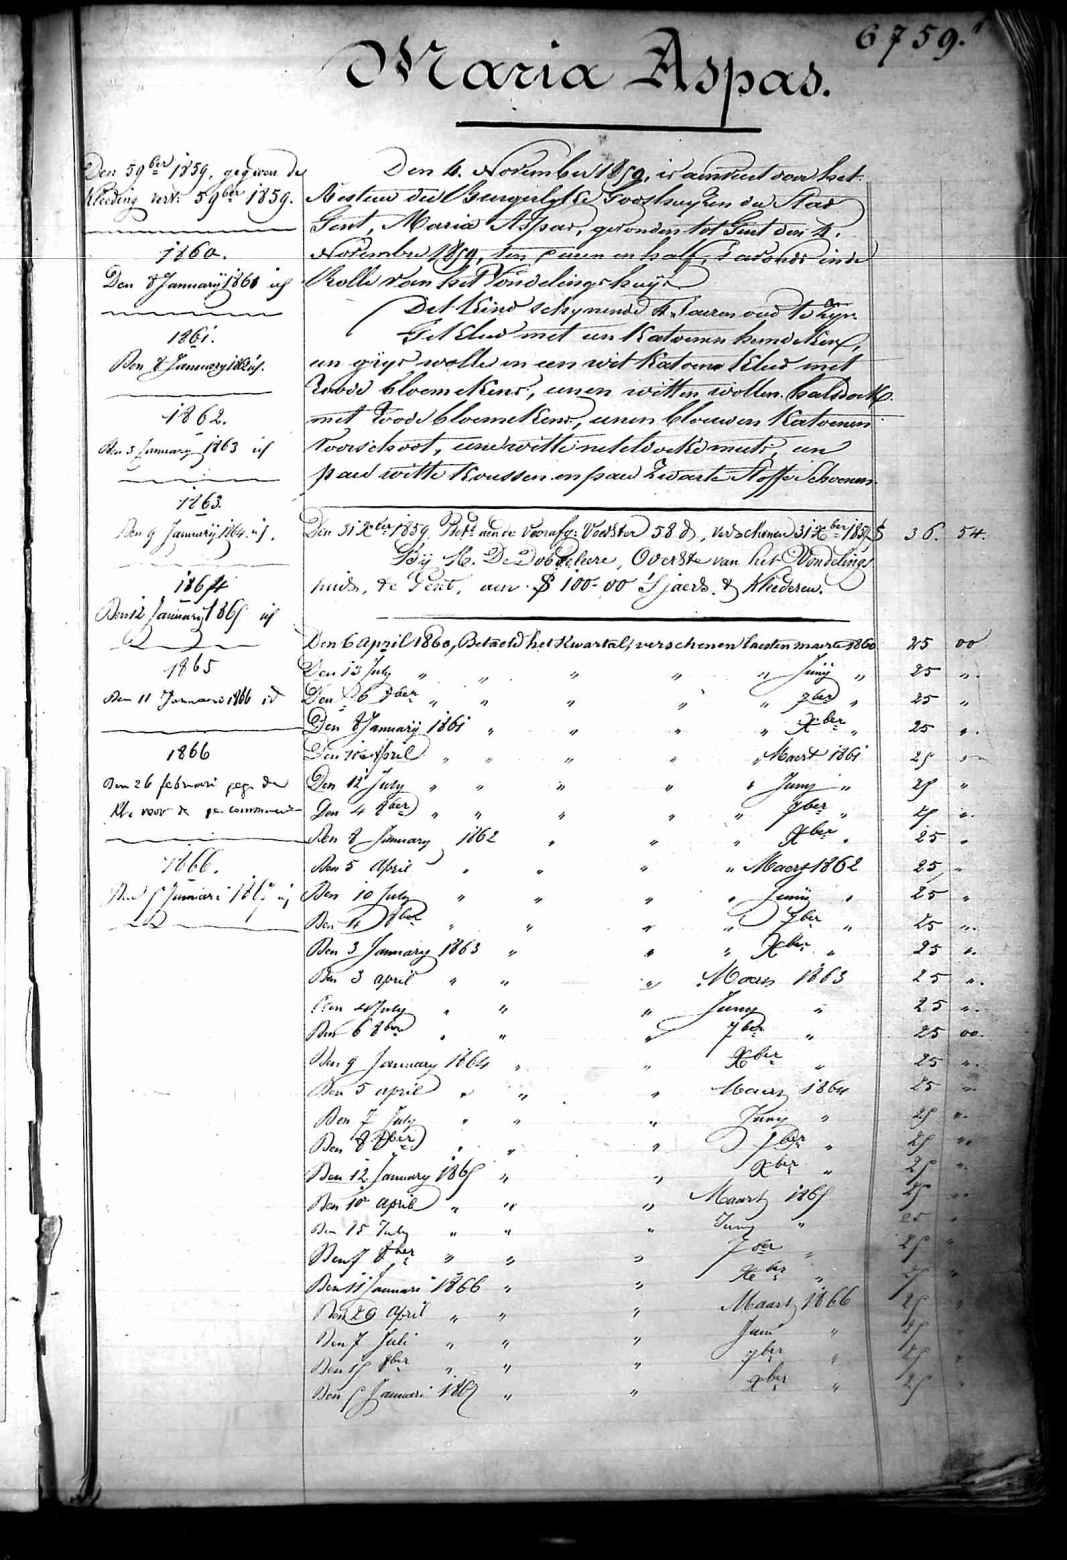 6759.
Maria Aspas.
Den 5 9ber 1859, gegeven de
Kleeding verk. 5 9ber 1859.
1860.
Den 8 January 1861 id
1861.
Den 8 January 1862 id.
1862.
Den 3 January 1863 id
1863.
Den 9 January 1864 id.
1864
Den 12 January 1865 id
1865
Den 11 Januari 1866 id
1866
Den 26 februari gege. de
Kl. voor de
1866.
Den 5 Januari 1867 id
Den 4. November 1859, is aenveert door het
Bestuur der Burgerlyke Godshuyzen der Stad
Gent, Maria Aspas, gevonden tot Gent den 4.
November 1859, ten uren en half, 's avonds in de
Rolle van het Vondelingshuys
Dit Kind schynende 4 Jaeren oud te zyn
Gekleed met een Katoenen hemdeken,
een grys wolle en een wit Katoene Kleed met
roode bloemekens, eenen witten wollen halsdoek
met roode bloemekens, eenen blouwen Katoenen
voorschoot, eene witte neteldoeke muts, een
paer witte Koussen en paer Zwarte Stoffe Schoenen.
Den 31 Xber 1859 Bet. aen de voorafg. Voedster 58 d, verschenen 31 Xber 1859 36. 54.
By M. De Dobbelaere, Overste van het Vondelings
huis, te Gent, aen 100-00 'S jaers & Kleederen.
Den 6 April 1860, Betaeld het Kwartael, verschenen laesten maerte 1860 25 00
Den 13 July " " " " " Juny " 25 ".
Den 6 8ber " " " " " 7ber " 25 "
Den 8 January 1861 " " " " Xber " 25 ".
Den April " " " " " Maert 1861 25 "
Den 12 July " " " " " Juny " 25 "
Den 4 8ber " " " " " 7ber " 25 ".
Den 8 January 1862 " " " Xber " 25 "
Den 5 April " " " " Maert 1862 25 "
Den 10 July " " " " Juny " 25 "
Den 4 8ber " " " " 7ber " 25 ".
Den 3 January 1863 " " " Xber " 25 ".
Den 3 april " " " Maers 1863 25 ".
Den July " " " Juny " 25 ".
Den 6 8ber " " " 7ber " 25 00.
Den 9 January 1864 " " Xber " 25 ".
Den 5 april " " " Maert 1864 25 "
Den 7 July " " " Juny " 25 ".
Den 8 8ber " " " 7ber " 25 "
Den 12 January 1865 " " Xber " 25 "
Den 10 april " " " Maart 1865 25 "
Den 15 July " " " Juny " 25 "
Den 7 8ber " " " 7ber " 25 "
Den 11 Januari 1866 " " Xber " 25 "
Den 20 april " " " Maart 1866 25 "
Den 7 Juli " " " Juni " 25 "
Den 15 8ber " " " 7ber " 25 "
Den 5 Januari 1867 " " Xber " 25 "